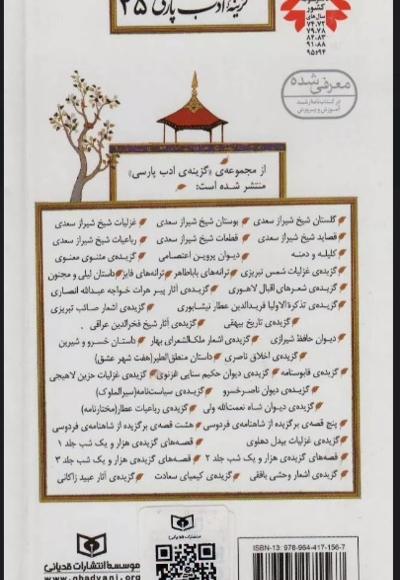 گزینهٔ ادب پارسی ۲۵
کشور
سال‌های
۷۴،۷۲
۷۹،۷۸
۸۴،۸۳
۹۱،۸۸
۹۵و۹۴
معرفی شده
در کتاب‌نامهٔ رشد
آموزش و پرورش
از مجموعه‌ی «گزینه‌ی ادب پارسی»
منتشر شده است:
گلستان شیخ شیراز سعدی بوستان شیخ شیراز سعدی غزلیات شیخ شیراز سعدی
قصاید شیخ شیراز سعدی قطعات شیخ شیراز سعدی رباعیات شیخ شیراز سعدی
کلیله و دمنه دیوان پروین اعتصامی گزیده‌ی مثنوی معنوی
گزیده‌ی غزلیات شمس تبریزی ترانه‌های باباطاهر ترانه‌های فایز داستان لیلی و مجنون
گزیده‌ی شعرهای اقبال لاهوری گزیده‌ی آثار پیر هرات خواجه عبدالله انصاری
گزیده‌ی تذکرة الاولیا فریدالدین عطار نیشابوری گزیده‌ی اشعار صائب تبریزی
گزیده‌ی تاریخ بیهقی گزیده‌ی آثار شیخ فخرالدین عراقی
دیوان حافظ شیرازی گزیده‌ی اشعار ملک‌الشعرای بهار داستان خسرو و شیرین
گزیده‌ی اخلاق ناصری داستان منطق‌الطیر(هفت شهر عشق)
گزیده‌ی قابوسنامه گزیده‌ی دیوان حکیم سنایی غزنوی گزیده‌ی غزلیات حزین لاهیجی
گزیده‌ی دیوان ناصرخسرو گزیده‌ی سیاست‌نامه(سیرالملوک)
گزیده‌ی دیوان شاه نعمت‌الله ولی گزیده‌ی رباعیات عطار(مختارنامه)
پنج قصه‌ی برگزیده از شاهنامه‌ی فردوسی هشت قصه‌ی برگزیده از شاهنامه‌ی فردوسی
گزیده‌ی غزلیات بیدل دهلوی قصه‌های گزیده‌ی هزار و یک شب جلد ۱
قصه‌های گزیده‌ی هزار و یک شب جلد ۲ قصه‌های گزیده‌ی هزار و یک شب جلد ۳
گزیده‌ی اشعار وحشی بافقی گزیده‌ی کیمیای سعادت گزیده‌ی آثار عبید زاکانی
موسسه انتشارات قدیانی
www.ghadyani.org
انتشارات قدیانی
ISBN-13: 978-964-417-156-7